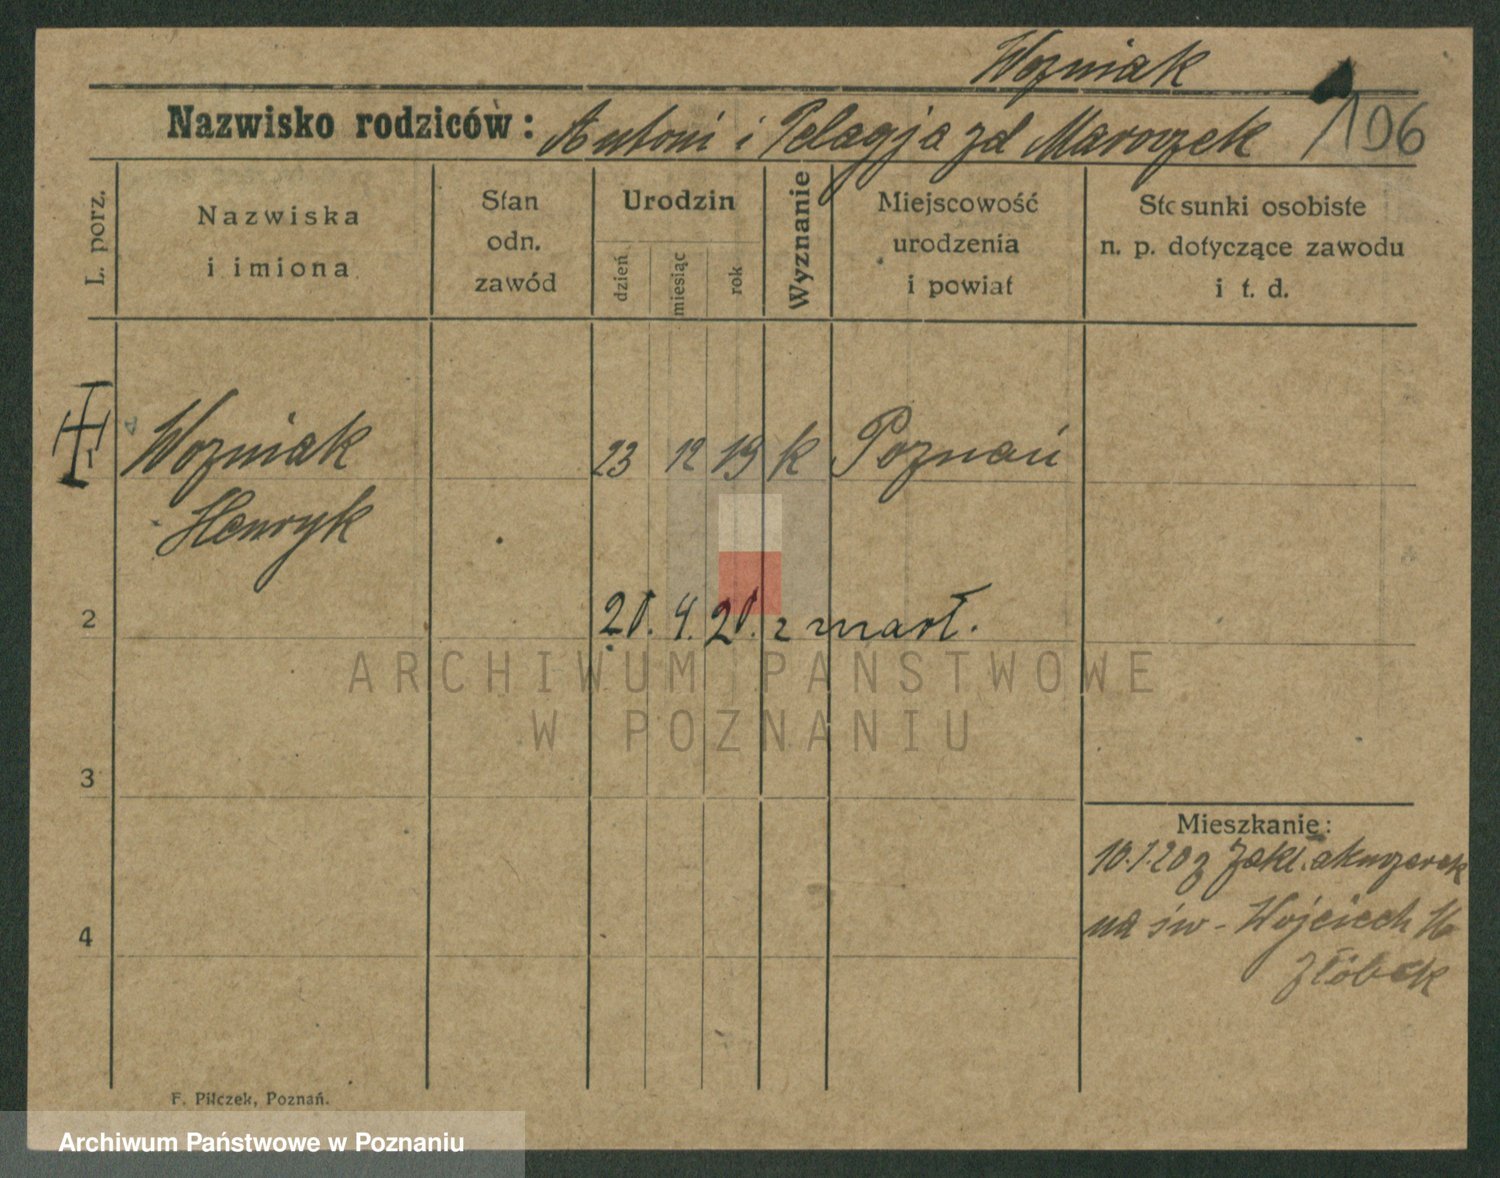 Wozniak
Nazwisko rodziców: Antoni i Pelagja zd Marozek 106
L. porz.
Nazwiska
i imiona
Stan
odn.
zawód
Urodzin
dzień
miesiąc
rok
Wyznanie
Miejscowość
urodzenia
i powiat
Stosunki osobiste
n. p. dotyczące zawodu
i t. d.
1 Wozniak 23 12 19 k Poznań
Henryk
2 20. 4. 20. zmarł.
ARCHIWUM PAŃSTWOWE
W POZNANIU
3
Mieszkanie:
10.1.20 z Zakł. akuszerek
na św - Wojciech 16
złóbek
4
F. Pilczek, Poznań.
Archiwum Państwowe w Poznaniu